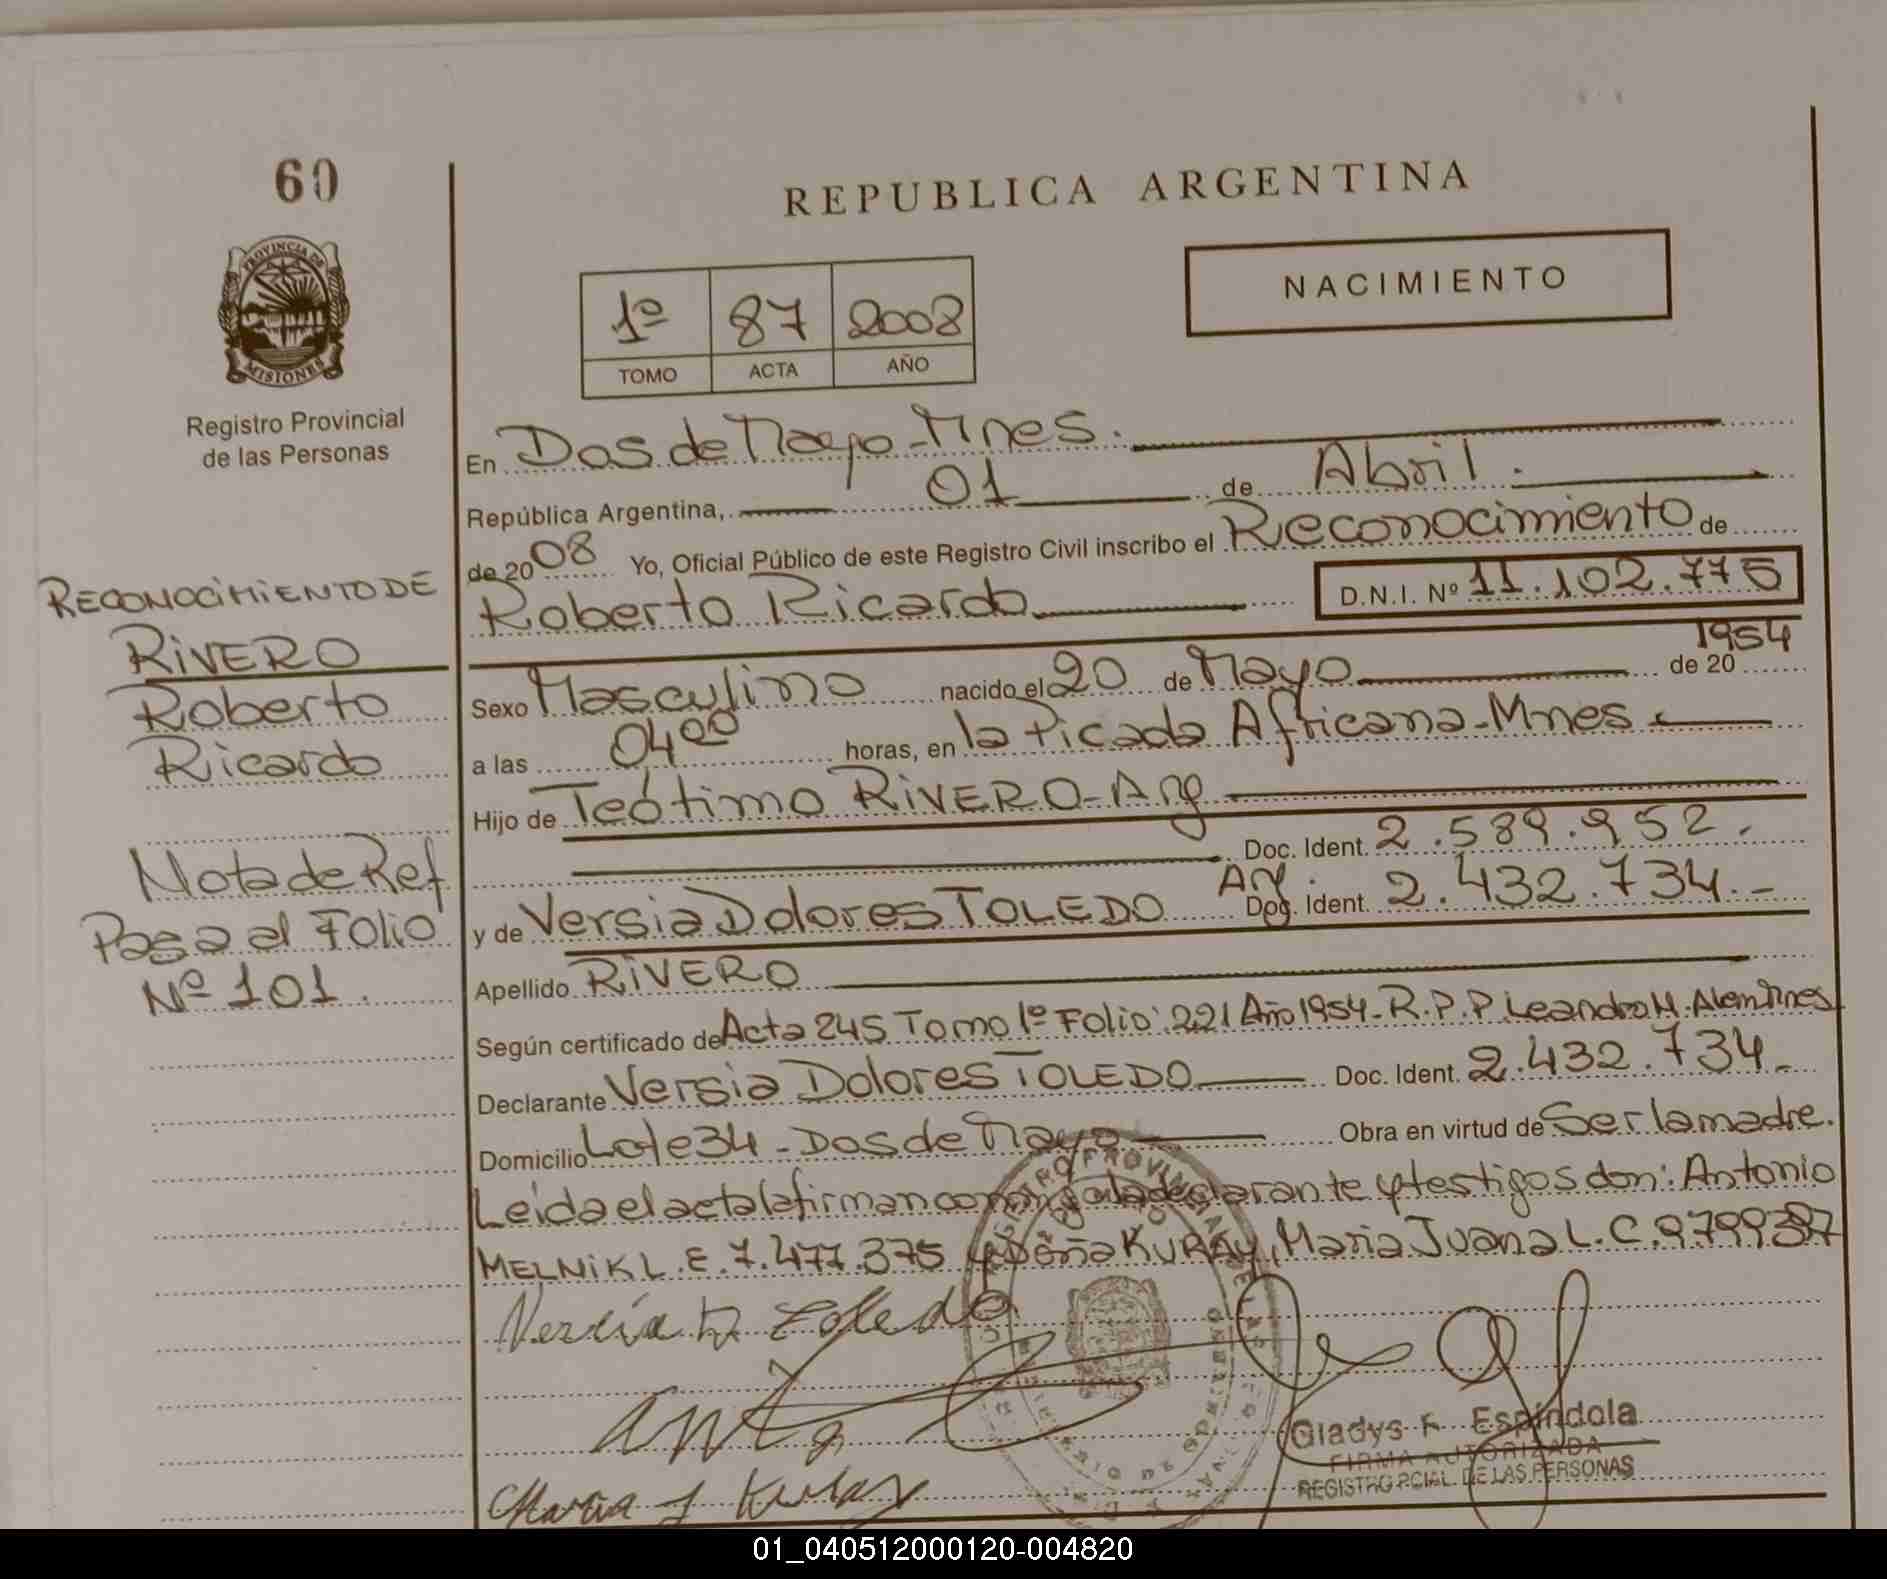 60
REPUBLICA ARGENTINA
PROVINCIA DE
MISIONES
Registro Provincial
de las Personas
NACIMIENTO
1º 87 2008
TOMO ACTA AÑO
En Dos de Mayo - Mnes.
República Argentina, 01 de Abril.
de 2008 Yo, Oficial Público de este Registro Civil inscribo el Reconocimiento de
Roberto Ricardo D.N.I. Nº 11.102.775
RECONOCIMIENTO DE
RIVERO
Roberto
Ricardo
Nota de Ref
Pasa al Folio
Nº 101.
1954
Sexo Masculino nacido el 20 de Mayo de 20
a las 04 00 horas, en la Picada Africana - Mnes
Hijo de Teótimo RIVERO - Arg
Doc. Ident. 2.589.952.
y de Versia Dolores TOLEDO Arg. Doc. Ident. 2.432.734.-
Apellido RIVERO
Según certificado de Acta 245 Tomo 1º Folio 221 Año 1954 - R.P.P. Leandro N. Alem Mnes
Declarante Versia Dolores TOLEDO Doc. Ident. 2.432.734.-
Domicilio Lote 34 - Dos de Mayo Obra en virtud de Ser la madre.
Leída el acta la firman conmigo la declarante y testigos don: Antonio
MELNIK L.E. 7.477.375 y Doña KURAY, Maria Juana L.C.
Versia D. Toledo
Gladys F. Espíndola
FIRMA AUTORIZADA
REGISTRO PCIAL. DE LAS PERSONAS
Maria J Kuray
01_040512000120-004820